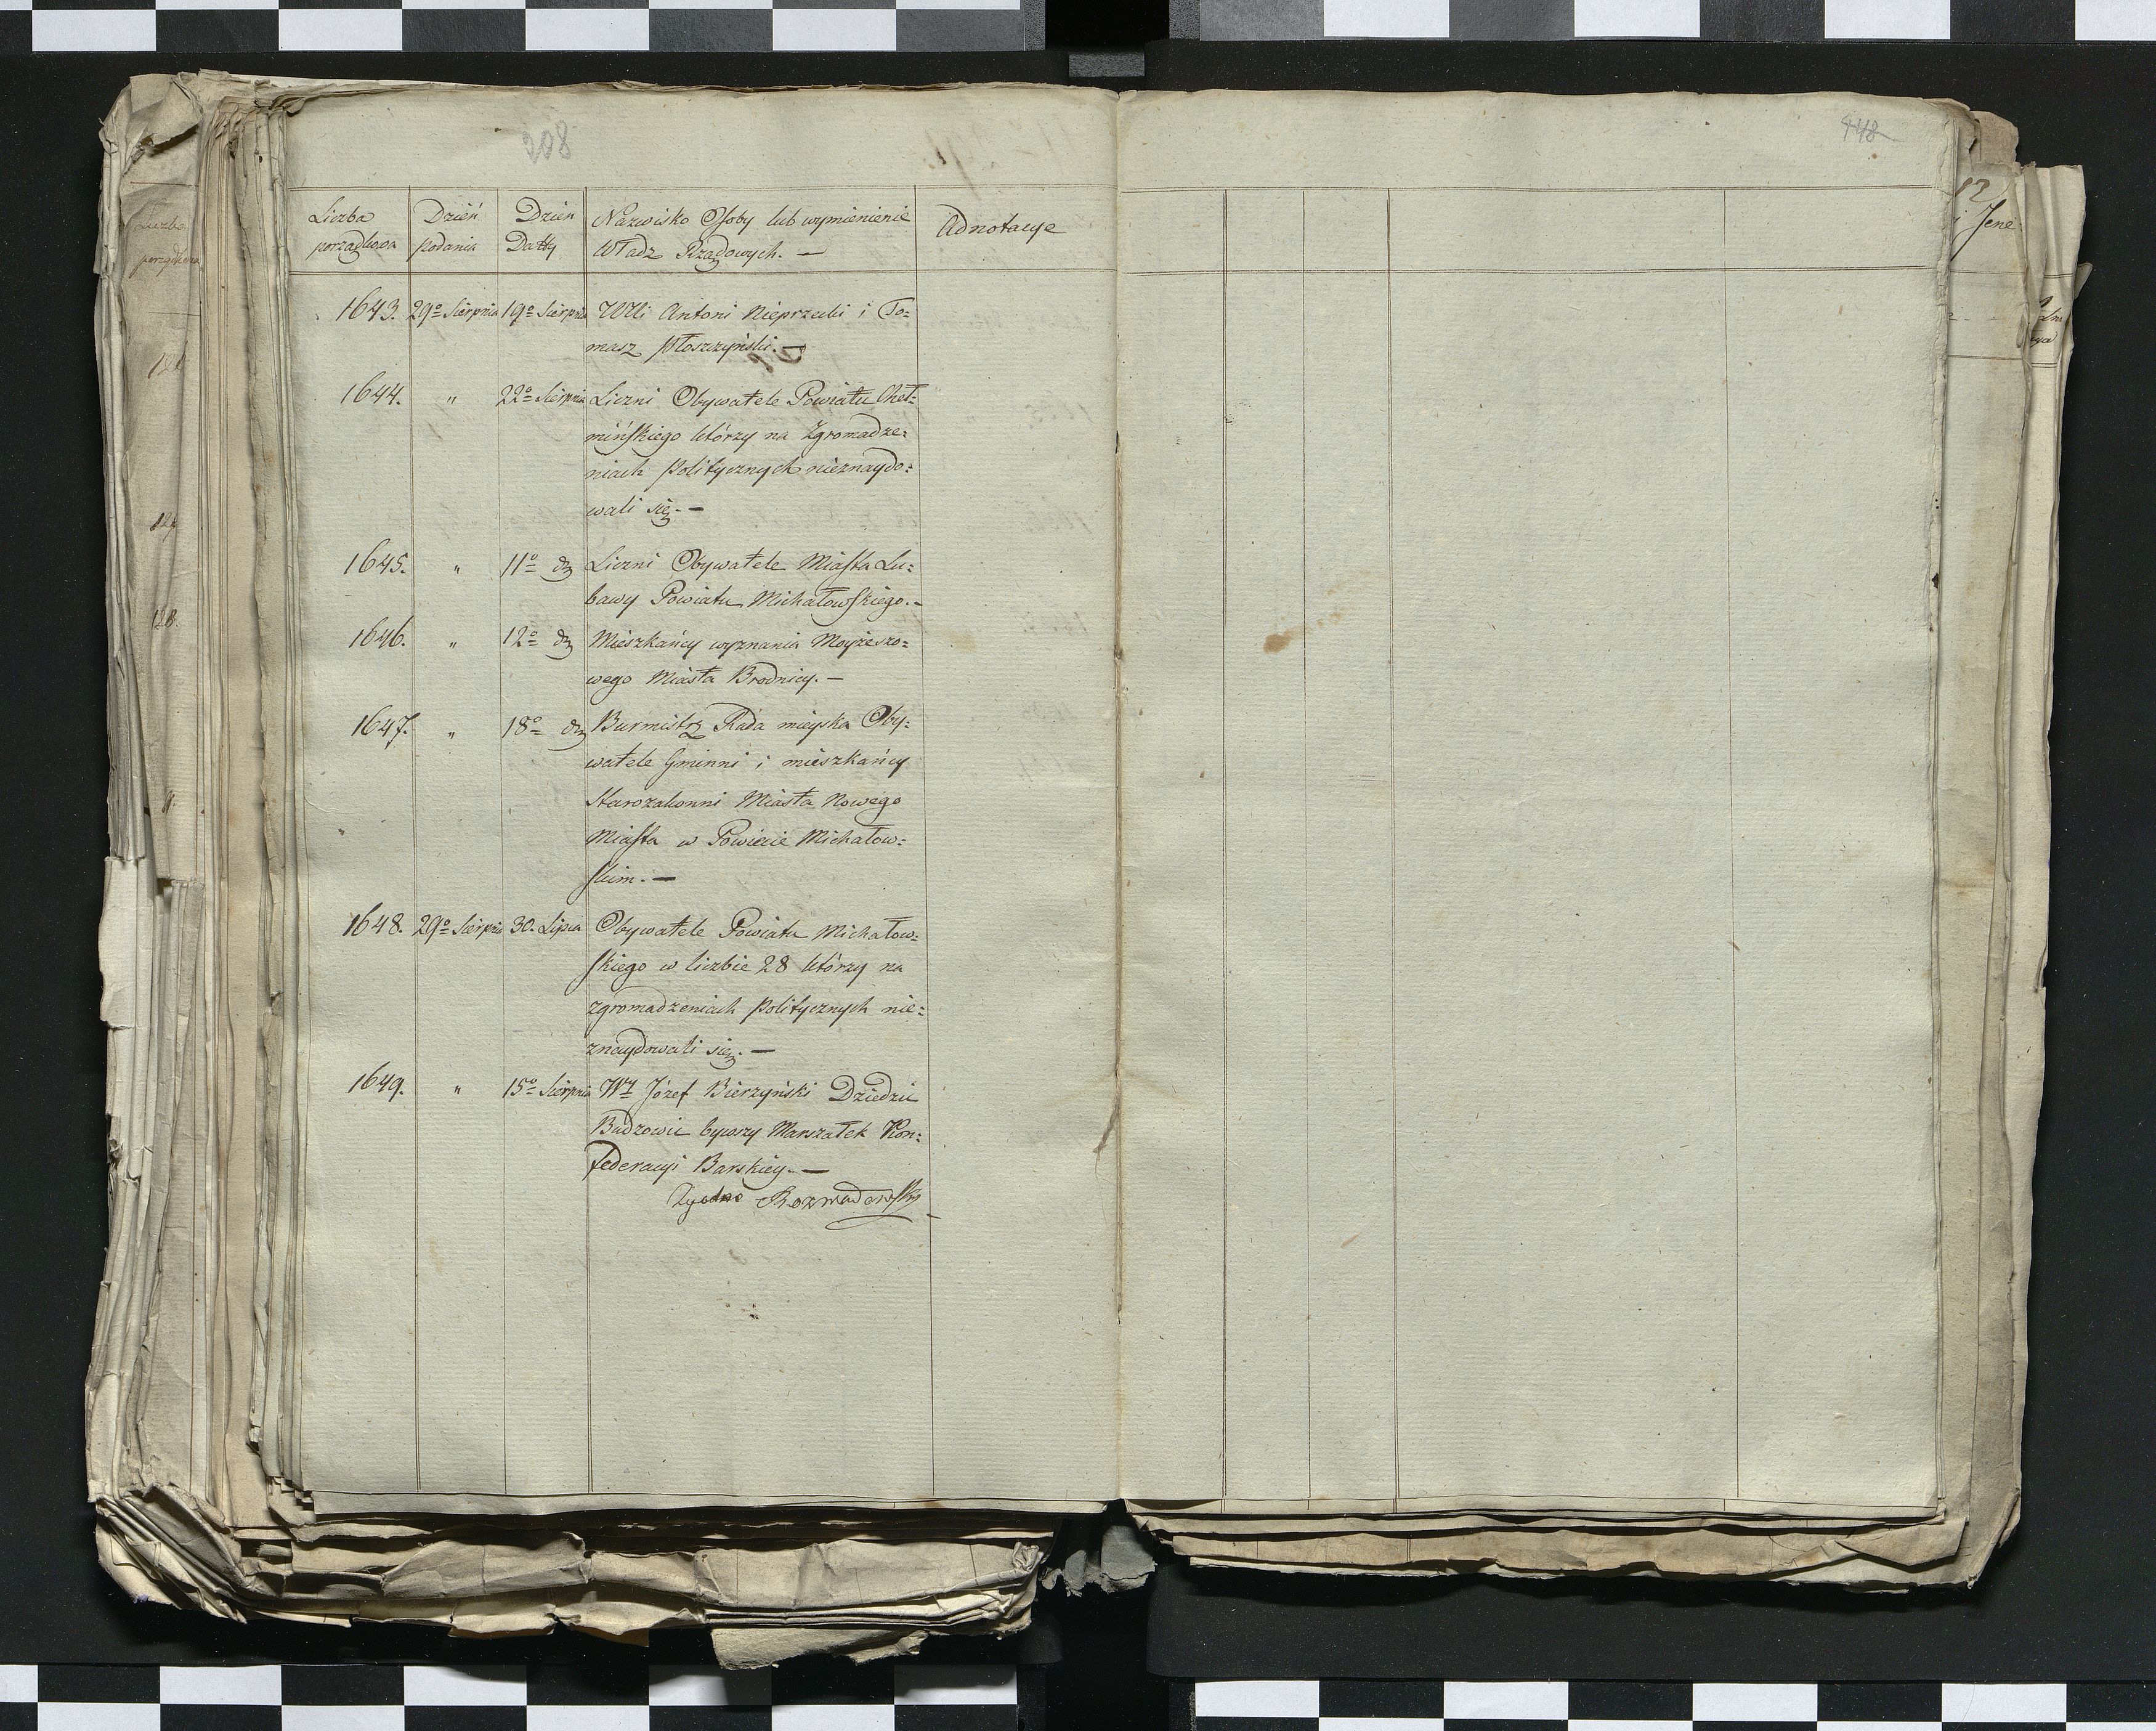 208
448
Liczba porządkowa
Dzień podania
Dzień Datty
Nazwisko Osoby lub wymienienie
Władz Rządowych. —
Adnotacye
1643. 29º Sierpnia 19º Sierpnia WWi Antoni Nieprzecki i To=
masz Płoszczyński. —
1644. " 22º Sierpnia Liczni Obywatele Powiatu Cheł=
mińskiego którzy na Zgromadze=
niach Politycznych nieznaydo=
wali się. —
1645. " 11º Liczni Obywatele Miasta Lu=
bawy Powiatu Michałowskiego. —
1646. " 12º Mieszkańcy wyznania Moyżeszo=
wego Miasta Brodnicy. —
1647. " 18º Burmistrz Rada mieyska Oby=
watele Gminni i mieszkańcy
Starozakonni Miasta Nowego
Miasta w Powiecie Michałow=
skim. —
1648. 29º Sierpnia 30. Lipca Obywatele Powiatu Michałow=
skiego w liczbie 28 którzy na
zgromadzeniach Politycznych nie=
znaydowali się. —
1649. " 15º Sierpnia Wy Józef Bierzyński Dziedzic
Budzowic bywszy Marszałek Kon=
federacyi Barskiey. —
Zgodno Rozwadowski